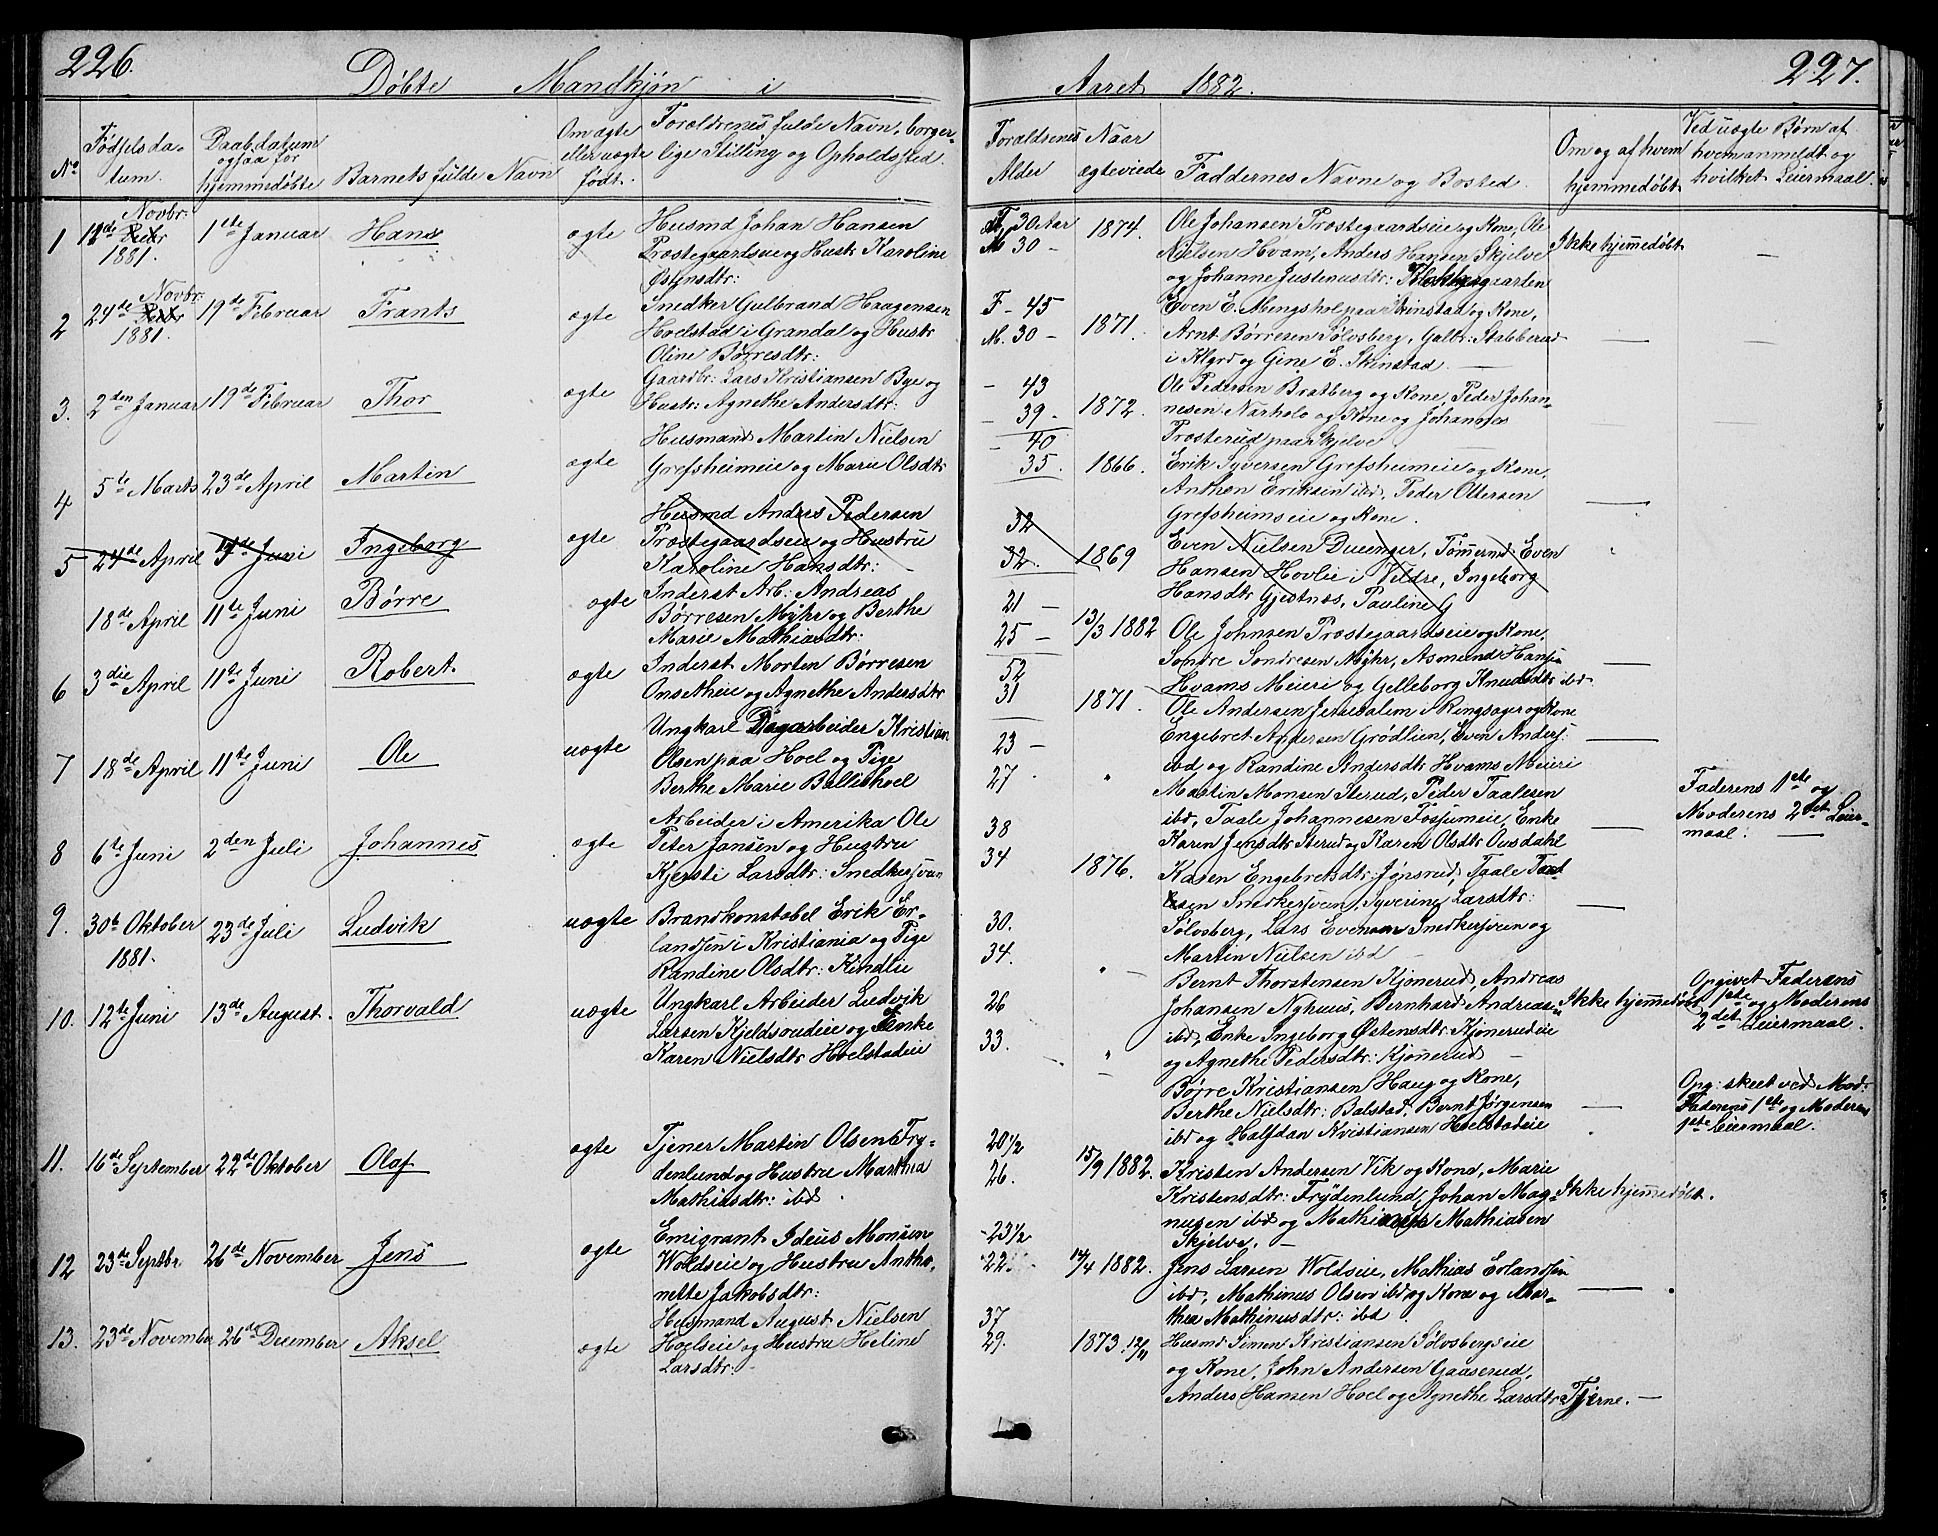 226.
Døbte Mandkjøn i
No
Fødselsda-
tum.
Daabsdatum
ogsaa for
hjemmedøbte
Barnets fulde Navn
Om ægte
eller uægte
født.
Forældrenes fulde Navn, borger-
lige Stilling og Opholdssted.
1
Novbr:
1881.
1ste Januar
Hans
ægte
Husmd Johan Hansen
Præstegaardseie og Hustr. Karoline
Østensdtr:
2
Novbr:
24de
1881.
19de Februar
Frants
ægte
Snedker Gulbrand Haagensen
Hoelstad i Grandal og Hustr.
Oline Børresdtr:
3.
2den Januar
19de Februar
Thor
ægte
Gaardbr: Lars Kristiansen Bye og
Hustr: Agnethe Andersdtr:
4
5te Marts
23de April
Martin
ægte
Husmand Martin Nielsen
Grefsheimeie og Marie Olsdtr
5
24de April
Juni
Ingeborg
ægte
Husmd Anders Pedersen
Præstegaardseie og Hustru
Karoline Hansdtr:
18de April
11te Juni
Børre
ægte
Inderst Arb: Andreas
Børresen Myhr og Berthe
Marie Mathiasdtr:
6
3die April
11te Juni
Robert.
ægte
Inderst Morten Børresen
Onsetheie og Agnethe Andersdtr
7
18de April
11te Juni
Ole
uægte
Ungkarl Dagarbeider Kristian
Olsen paa Hoel og Pige
Berthe Marie Ballishoel
8
6te Juni
2den Juli
Johannes
ægte
Arbeider i Amerika Ole
Peter Jansen og Hustru
Kjersti Larsdtr: Snedkersveen
9.
30te Oktober
1881.
23de Juli
Ludvik
uægte
Brandkonstabel Erik Er-
landsen i Kristiania og Pige
Randine Olsdtr: Kindlie
10.
12te Juni
13de August.
Thorvald
uægte
Ungkarl Arbeider Ludvik
Larsen Kjeldsrudeie og Enke
Karen Nielsdtr Hoelstadeie
11.
16de September
22de Oktober
Olaf
ægte
Tjener Martin Olsen Fry-
denlund og Hustru Marthea
Mathisdtr: ibd.
12
23de Septbr.
26de November
Jens
ægte
Emigrant Ideus Monsen
Woldseie og Hustru Antho-
nette Jakobsdtr:
13.
23de November
26de December
Aksel
ægte
Husmand August Nielsen
Hoelseie og Hustru Heline
Larsdtr:
227.
Aaret 1882.
Forældrenes
Alder
Naar
ægteviede
Faddernes Navne og Bosted.
Om og af hvem
hjemmedøbt
Ved uægte Børn af
hvem anmeldt og
hvilket Leiermaal.
F. 30 Aar
M 30 -
1874.
Ole Johansen Præstegaardseie og Kone, Ole
Nielsen Hvam, Anders Hansen Skjelve
og Johanne Justenusdtr: Klokkergaarden
Ikke hjemmedøbt
F - 45
M. 30 -
1871.
Even E. Mengshol paa Skinstad og Kone,
Arnt Børresen Sølvsberg, Gulbr: Stabberud
i Klgrd og Gine E. Skinstad.
43
39 -
1872.
Ole Pedersen Bratberg og Kone, Peder Johan-
nesen Narholo og Kone og Johannes
Prosterud paa Skjelve
40
35.
1866.
Erik Syversen Grefsheimeie og Kone,
Anthon Eriksen ibd, Peder Ottersen
Grefsheimseie og Kone.
32
32.
1869
Even Nielsen Duenger, Tømermd Even
Hansen Hovlie i Veldre, Ingeborg
Hansdtr Gjestnæs, Pauline G
21 -
25 -
13/3 1882
Ole Johnsen Præstegaardseie og Kone,
Søndre Sondresen Myhr, Asmund Hansen
Hvams Meieri og Gelleborg Knudsdtr ibd.
52
31
1871.
Ole Andersen Jerusalem i Ringsager og Kone
Engebret Andersen Grødlien, Even Anders:
ibd og Randine Andersdtr Hvams Meieri
23 -
27
"
Martin Monsen Sterud, Peder Taalesen
ibd, Taale Johannesen Fossumeie, Enke
Karen Jensdtr Sterud og Karen Olsdtr Ovesdahl
Faderens 1ste og
Moderens 2det Leier-
maal.
38
34
1876.
Kasen Engebretsdtr: Jønsrud, Taale Taal
esen Snedkersveen, Syverine Larsdtr:
Sølvsberg, Lars Evensen Snedkersveen og
Martin Nielsen ibd
30.
34.
"
Bernt Thorstensen Kjønerud, Andreas
Johansen Nyhuus, Bernhard Andreasen
ibd, Enke Ingeborg Østensdtr Kjønerudeie
og Agnethe Pedersdtr: Kjønerud
Ikke hjemmedøbt
Opgivet Faderens
1ste og Moderens
2det Leiermaal.
26
33.
"
Børre Kristiansen Haug og Kone,
Berthe Nielsdtr: Balstad, Bernt Jørgensen
ibd og Halfdan Kristiansen Hoelstadeie
Opg: skeet ved Mod:
Faderens 1ste og Moderens
1ste Leiermaal.
20 1/2
26.
15/9 1882.
Kristen Andersen Vik og Kone, Marie
Kristensdtr: Frydenlund, Johan Mag-
nusen ibd og Mathias Mathiasen
Skjelve.
Ikke hjemmedøbt.
23 1/2
22
14/4 1882.
Jens Larsen Woldseie, Mathias Erlandsen
ibd, Mathinus Olsen ibd og Kone og Mar-
thea Mathinusdtr: ibd.
37
29.
1873. 12/11
Husmd Simen Kristiansen Sølvsbergseie
og Kone, John Andersen Gaaserud,
Anders Hansen Hoel og Agnethe Larsdtr Tjerne.